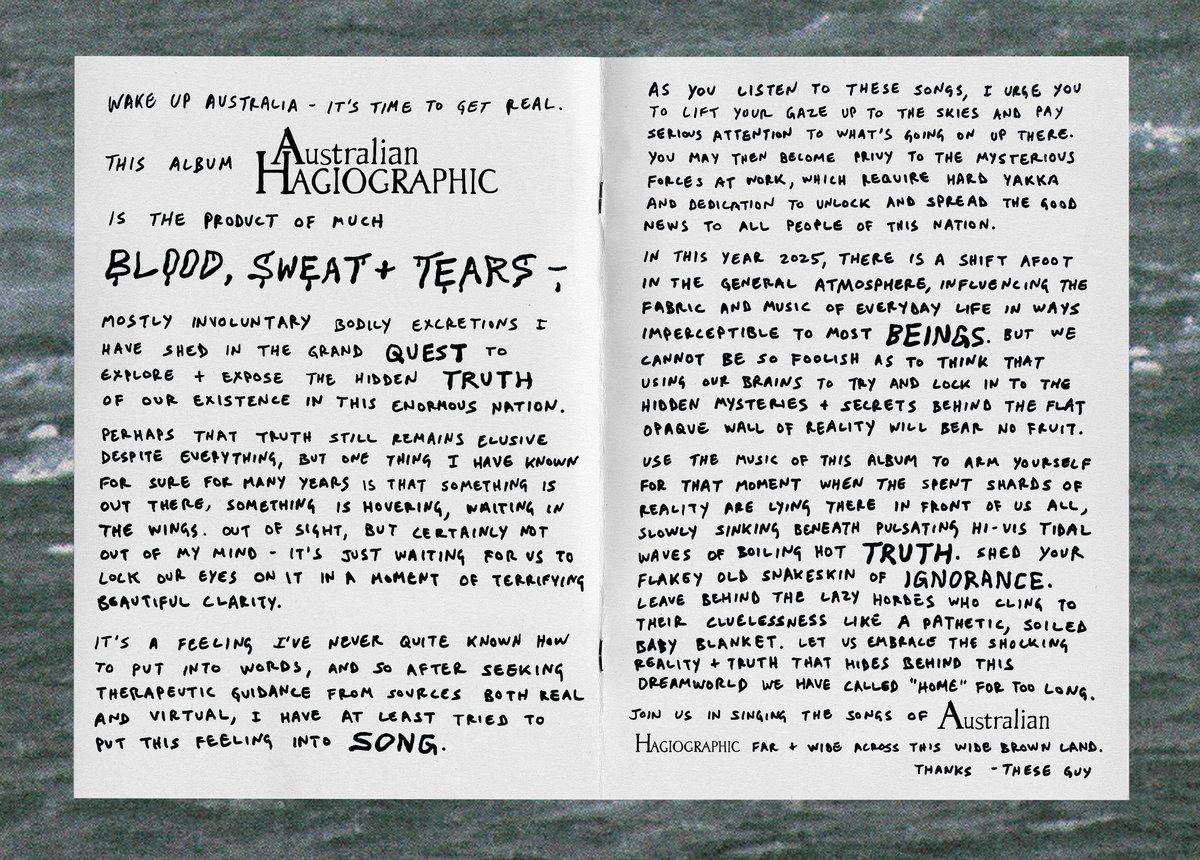 WAKE UP AUSTRALIA - IT'S TIME TO GET REAL.
THIS ALBUM Australian HAGIOGRAPHIC
IS THE PRODUCT OF MUCH
BLOOD, SWEAT + TEARS -
MOSTLY INVOLUNTARY BODILY EXCRETIONS I
HAVE SHED IN THE GRAND QUEST TO
EXPLORE + EXPOSE THE HIDDEN TRUTH
OF OUR EXISTENCE IN THIS ENORMOUS NATION.
PERHAPS THAT TRUTH STILL REMAINS ELUSIVE
DESPITE EVERYTHING, BUT ONE THING I HAVE KNOWN
FOR SURE FOR MANY YEARS IS THAT SOMETHING IS
OUT THERE, SOMETHING IS HOVERING, WAITING IN
THE WINGS. OUT OF SIGHT, BUT CERTAINLY NOT
OUT OF MY MIND - IT'S JUST WAITING FOR US TO
LOCK OUR EYES ON IT IN A MOMENT OF TERRIFYING
BEAUTIFUL CLARITY.
IT'S A FEELING I'VE NEVER QUITE KNOWN HOW
TO PUT INTO WORDS, AND SO AFTER SEEKING
THERAPEUTIC GUIDANCE FROM SOURCES BOTH REAL
AND VIRTUAL, I HAVE AT LEAST TRIED TO
PUT THIS FEELING INTO SONG.
AS YOU LISTEN TO THESE SONGS, I URGE YOU
TO LIFT YOUR GAZE UP TO THE SKIES AND PAY
SERIOUS ATTENTION TO WHAT'S GOING ON UP THERE.
YOU MAY THEN BECOME PRIVY TO THE MYSTERIOUS
FORCES AT WORK, WHICH REQUIRE HARD YAKKA
AND DEDICATION TO UNLOCK AND SPREAD THE GOOD
NEWS TO ALL PEOPLE OF THIS NATION.
IN THIS YEAR 2025, THERE IS A SHIFT AFOOT
IN THE GENERAL ATMOSPHERE, INFLUENCING THE
FABRIC AND MUSIC OF EVERYDAY LIFE IN WAYS
IMPERCEPTIBLE TO MOST BEINGS. BUT WE
CANNOT BE SO FOOLISH AS TO THINK THAT
USING OUR BRAINS TO TRY AND LOCK IN TO THE
HIDDEN MYSTERIES + SECRETS BEHIND THE FLAT
OPAQUE WALL OF REALITY WILL BEAR NO FRUIT.
USE THE MUSIC OF THIS ALBUM TO ARM YOURSELF
FOR THAT MOMENT WHEN THE SPENT SHARDS OF
REALITY ARE LYING THERE IN FRONT OF US ALL,
SLOWLY SINKING BENEATH PULSATING HI-VIS TIDAL
WAVES OF BOILING HOT TRUTH. SHED YOUR
FLAKEY OLD SNAKESKIN OF IGNORANCE.
LEAVE BEHIND THE LAZY HORDES WHO CLING TO
THEIR CLUELESSNESS LIKE A PATHETIC, SOILED
BABY BLANKET. LET US EMBRACE THE SHOCKING
REALITY + TRUTH THAT HIDES BEHIND THIS
DREAMWORLD WE HAVE CALLED "HOME" FOR TOO LONG.
JOIN US IN SINGING THE SONGS OF Australian
HAGIOGRAPHIC FAR + WIDE ACROSS THIS WIDE BROWN LAND.
THANKS - THESE GUY